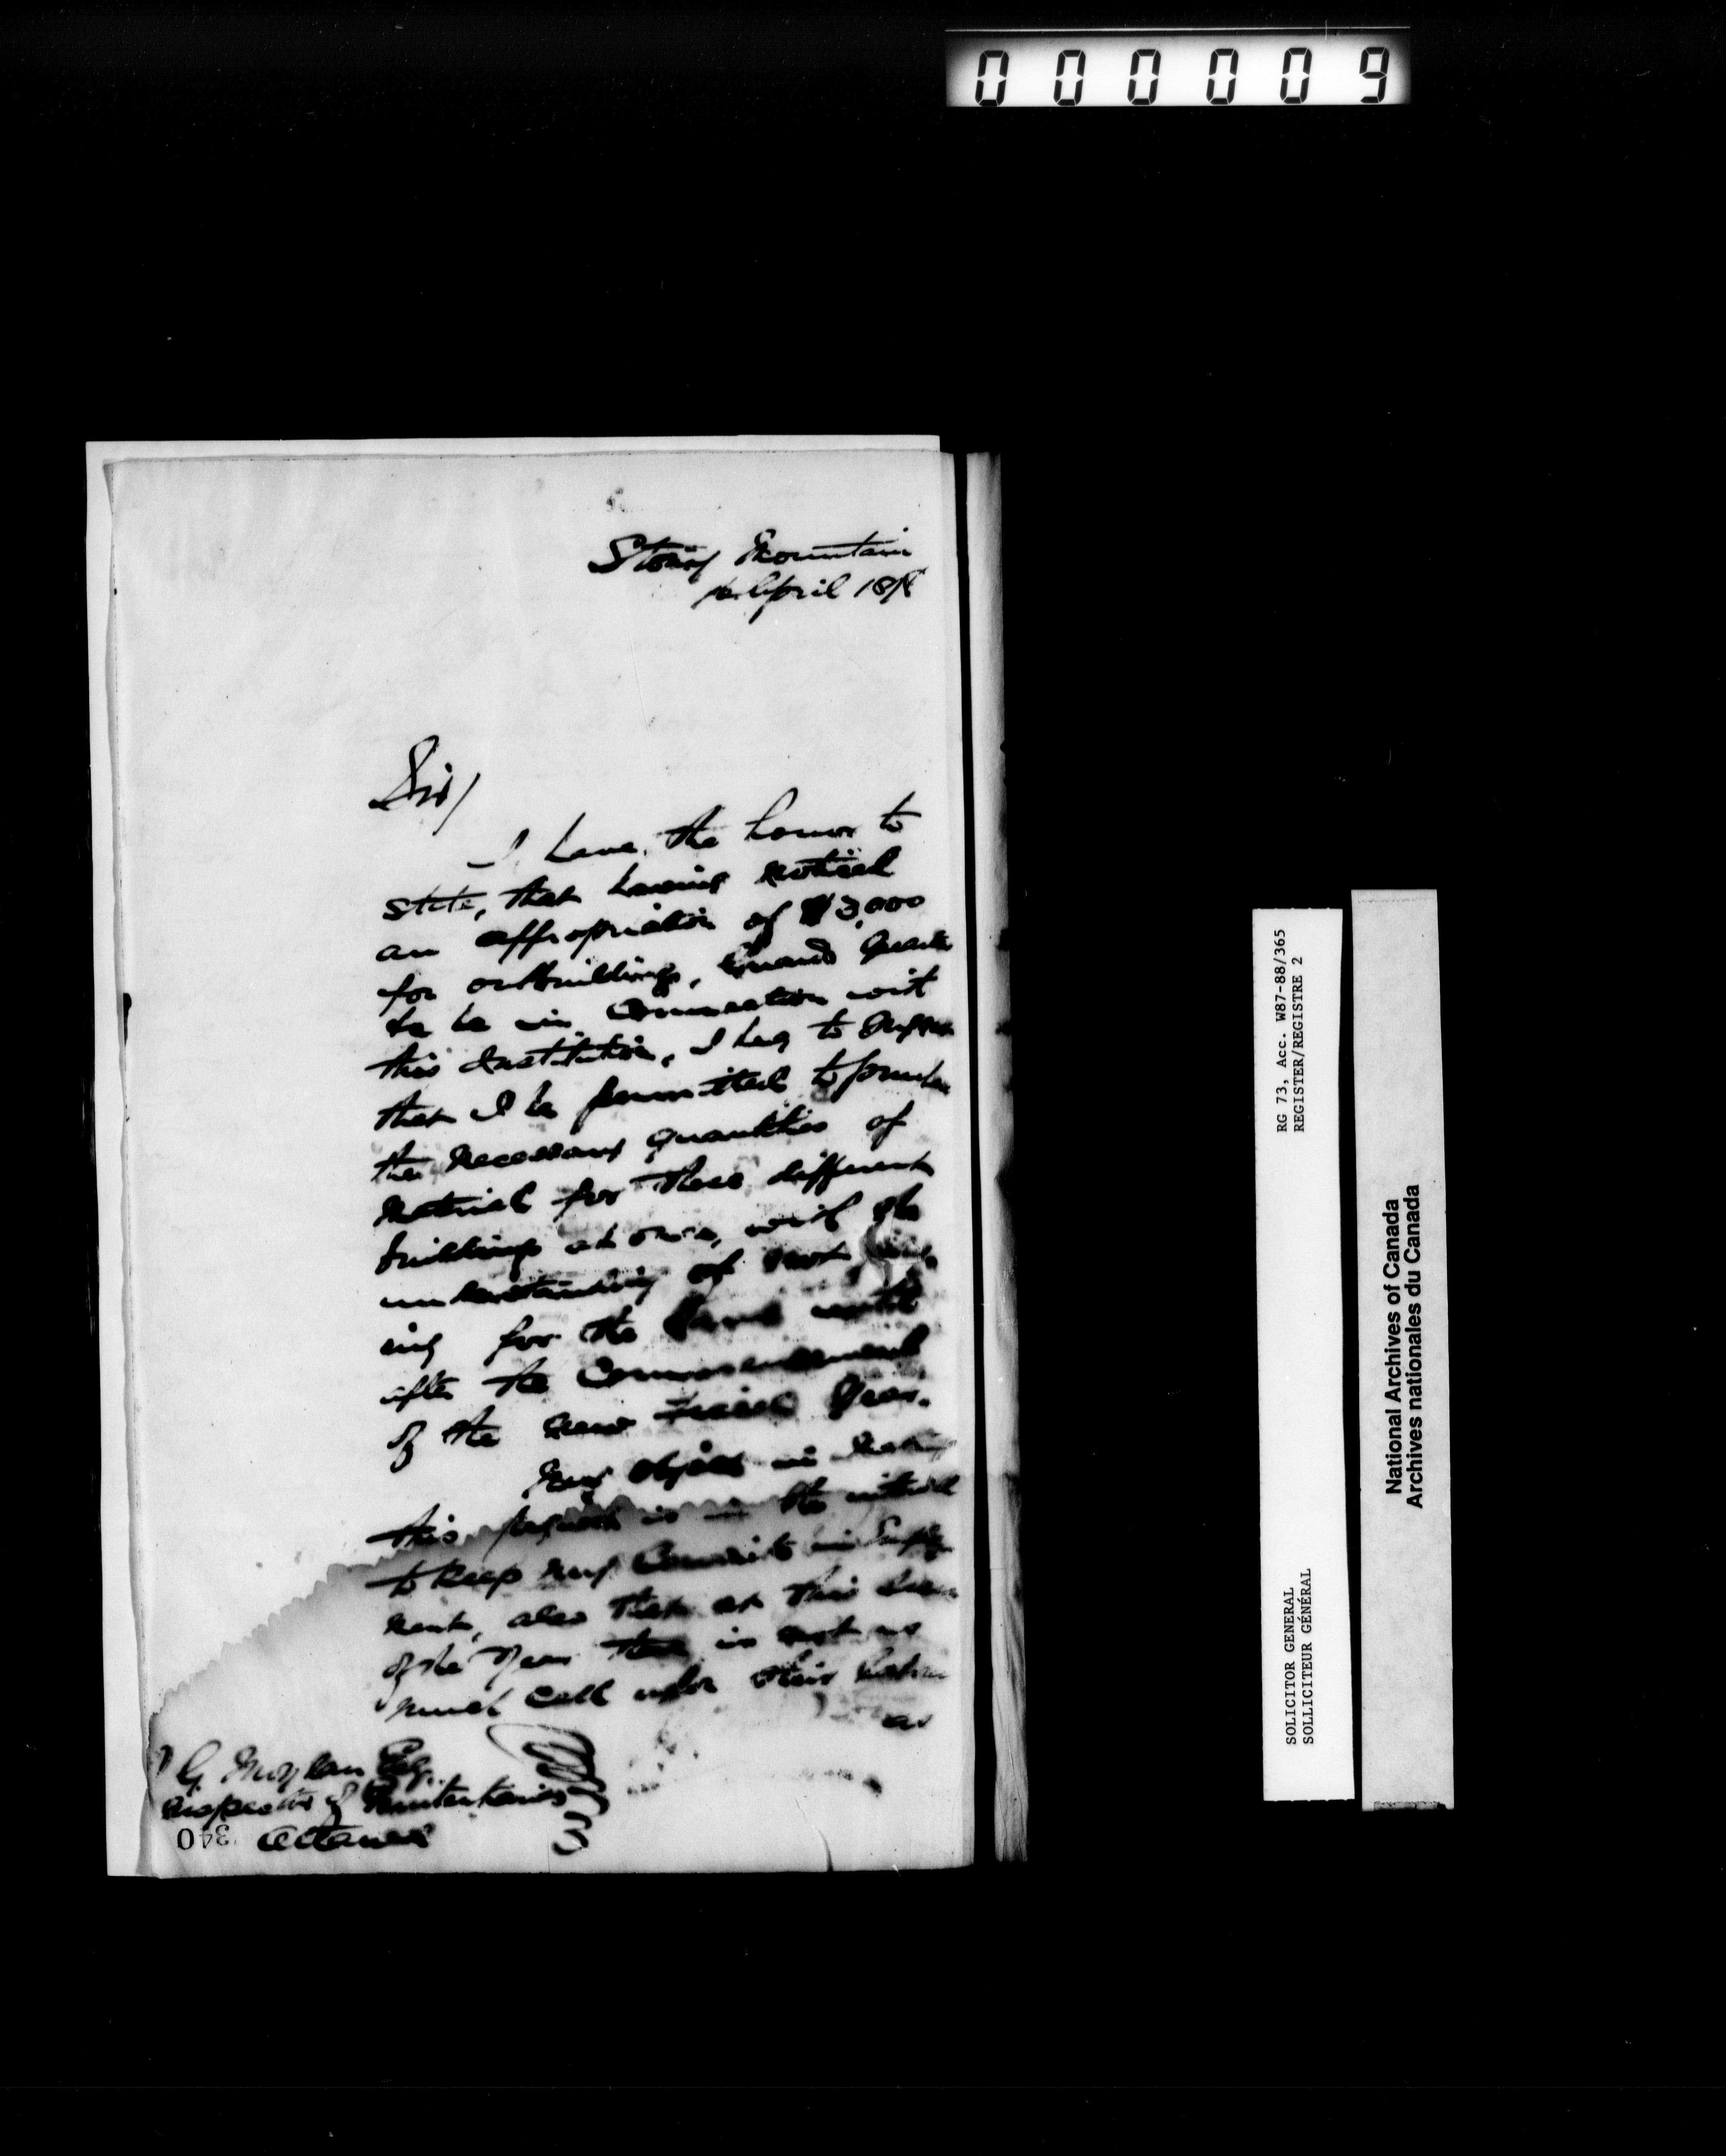 000009
Stony Mountain
April 187
Sir/
I have the honor to
state, that having noticed
an appropriation of $3,000
for outbuildings, Guard Quarters
to be in Connection with
this Institution, I beg to
that I be permitted to purchase
the necessary quantities of
Material for these different
buildings at once, with the
understanding of not
ing for the Same until
after the Commencement
of the new Fiscal Year.
My object in making
this request is in the interest
to keep my Convicts in Employ
ment, also that at this
of the Year there is not as
much Call upon their labour
as
J G. Moylan Esq.
Inspector of Penitentiaries
Ottawa
340
RG 73, Acc. W87-88/365
REGISTER/REGISTRE 2
SOLICITOR GENERAL
SOLLICITEUR GÉNÉRAL
National Archives of Canada
Archives nationales du Canada